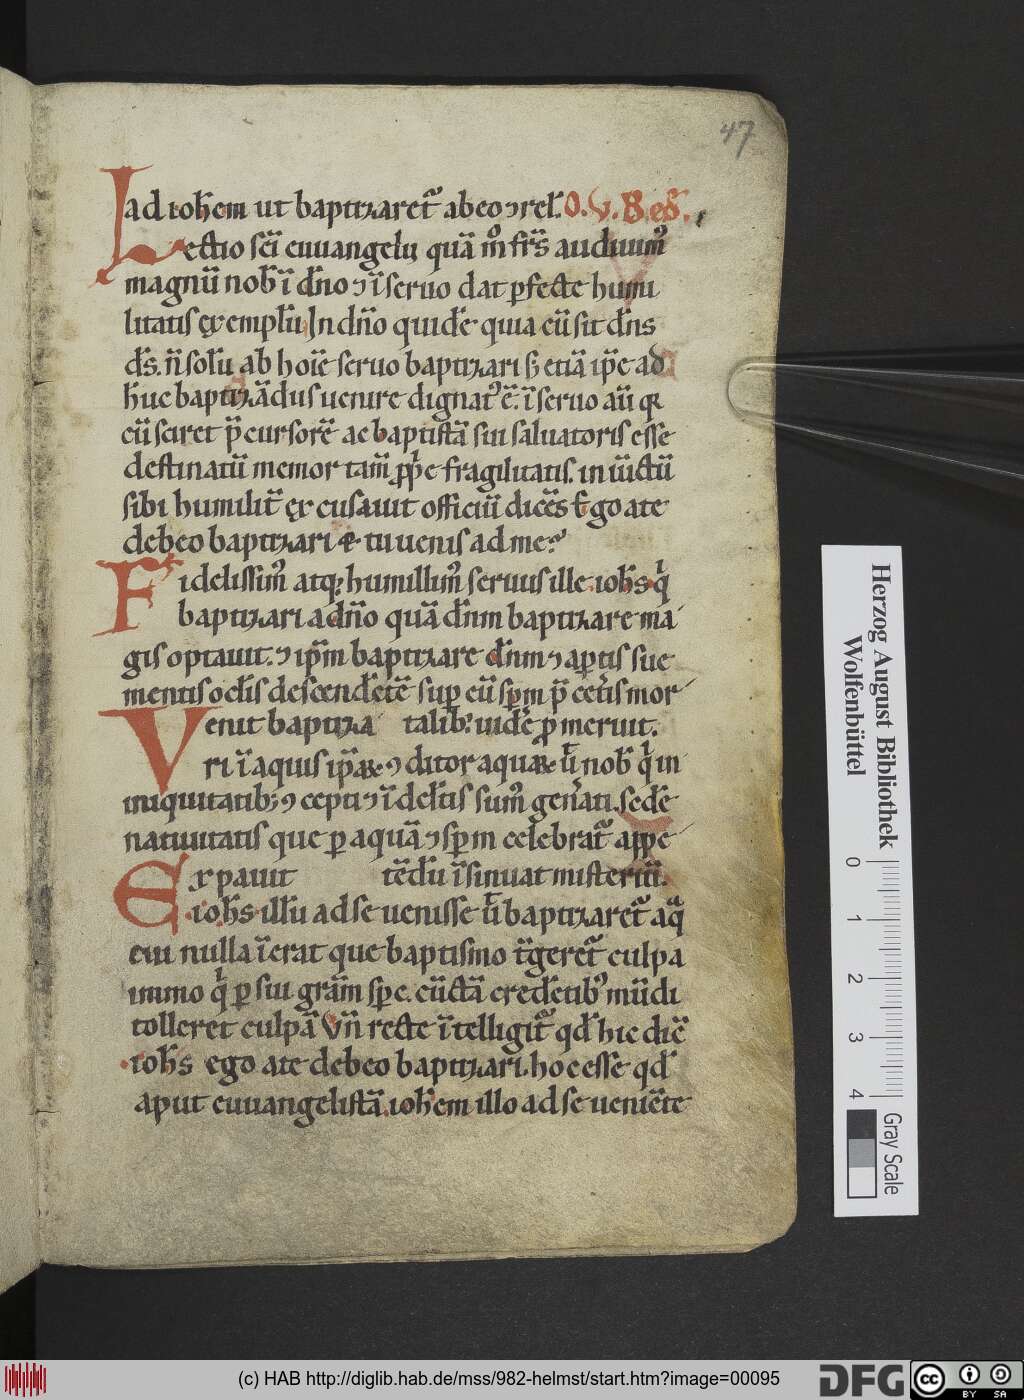 47
ad ioh̄em ut baptizaret᷑ ab eo ⁊ rel̄. O. V. B. eꝑ̄.
Lectio sc̄i euuangelii quā m̊ fr̄s audiuim᷒
magnū nob̄ ī dn̄o ⁊ ī seruo dat ꝑfecte humi
litatis exemplū In dn̄o quidē quia cū sit dn̄s
d̄s. n̄ solū ab hoīe seruo baptizari s; etiā ip̄e ad
h̄uc baptizādus uenire dignat᷒ ē. ī seruo aū qꝛ
cū sciret p̄cursorē ac baptistā sui saluatoris esse
destinatū memor tam̄ ꝓp̄e fragilitatis. iniūctū
sibi humilit̄ excusauit officiū dicēs Ego a te
debeo baptizari & tu uenis ad me?
Fidelissim᷒ atq; humillim᷒ seruus ille ioh̄s q̇
baptizari a dn̄o quā dn̄m baptizare ma
gis optauit. ⁊ ip̄m baptizare dn̄m ⁊ aptis sue
mentis oc̄lis descendētē suꝑ eū sp̄m p̄ cet̄is mor
talib᷒ uidē ꝓmeruit.
Venit baptiza
ri ī aquis ip̄aꝝ ⁊ditor aquaꝝ ut̄ nob̄ q̇ in
iniquitatib; ⁊cepti ⁊ ī del̄tis sum᷒ gen̄ati. secdē
natiuitatis que ꝑ aquā ⁊ sp̄m celebrat᷑ appe
tēdū īsinuat misteriū.
Expauit
ioh̄s illū ad se uenisse ut̄ baptizaret᷑ aq̄
cui nulla īerat que baptismo t̄geret᷑ culpa
immo q̇ ꝑ sui gram̄ sp̄c. cūctā credētib᷒ mūdi
tolleret culpā Vn̄ recte ītelligit᷑ qd̄ hic dic̄
ioh̄s ego a te debeo baptizari. hoc esse qd̄
aput euuangelistā ioh̄em illo ad se ueniēte
Herzog August Bibliothek
Wolfenbüttel
0 1 2 3 4
Gray Scale
(c) HAB http://diglib.hab.de/mss/982-helmst/start.htm?image=00095
DFG
cc BY SA